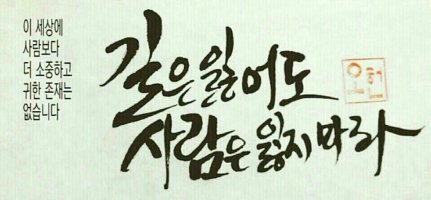 이 세상에
사람보다
더 소중하고
귀한 존재는
없습니다
길은 잃어도
사람은 잃지 마라